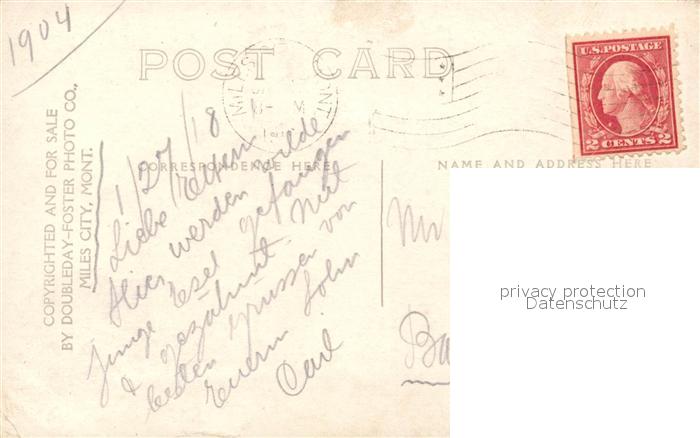 1904
POST CARD
U.S. POSTAGE
2 CENTS 2
COPYRIGHTED AND FOR SALE
BY DOUBLEDAY-FOSTER PHOTO CO.,
MILES CITY, MONT.
CORRESPONDENCE HERE
NAME AND ADDRESS HERE
1/27/18
Liebe Eltern
Hier werden wilde
junge Esel gefangen
& gezähmt. Mit
besten Grüssen von
Euerm Sohn
Carl
Mr
Ba
privacy protection
Datenschutz